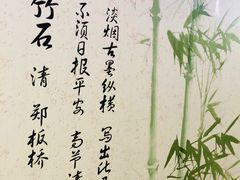 淡烟古墨纵横 写出此
不须日报平安 高节清
竹石 清 郑板桥